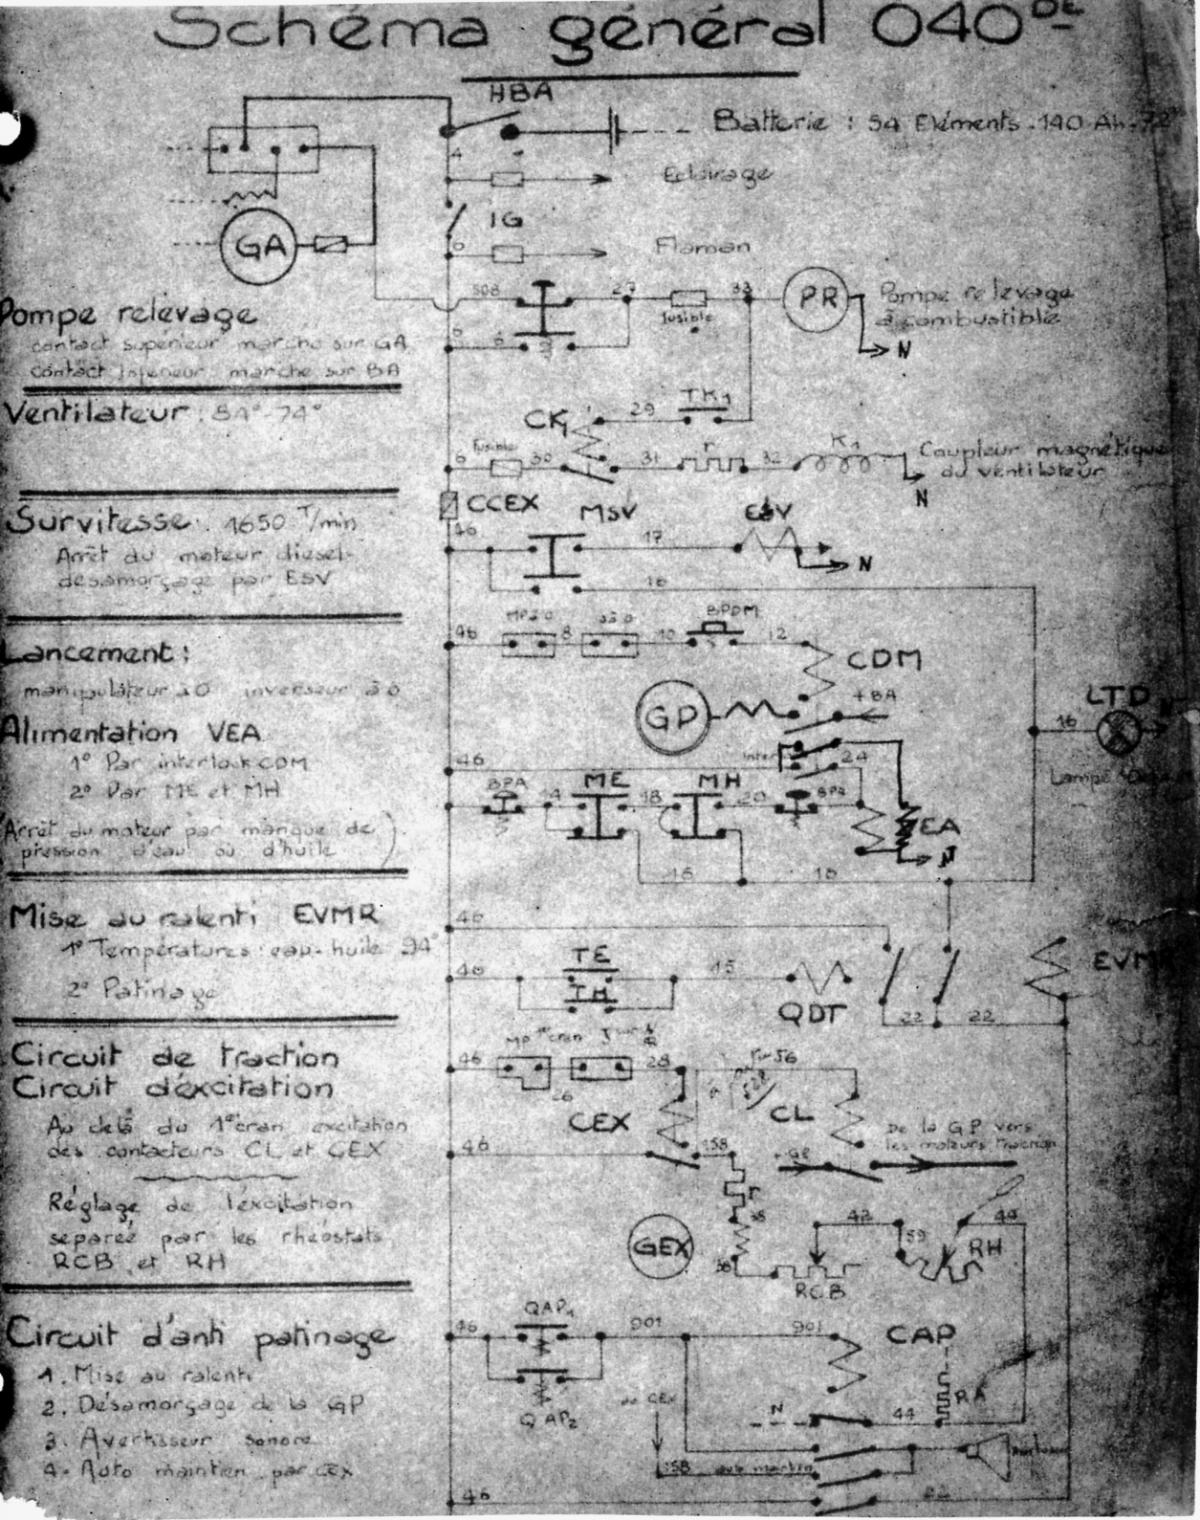 Schéma général 040 DE
HBA
Batterie : 54 Eléments . 190 Ah . 72
4
Eclairage
IG
6
Flaman
GA
508
27
33
PR
Pompe relevage
à combustible
fusible
N
6
6
Pompe relevage
contact supérieur marche sur GA
contact inférieur marche sur BA
Ventilateur : 84°-74°
CK1
29
TK1
6
fusible
30
31
r
32
K1
Coupleur magnétique
du ventilateur
N
CCEX
Survitesse : 1650 T/min
Arrêt du moteur diesel-
désamorçage par ESV
46
MSV
17
ESV
N
16
46
MP à 0
8
J à 0
10
BPDM
12
CDM
Lancement :
manipulateur à 0 inverseur à 0
GP
+BA
LTD
16
N
Alimentation VEA
1° Par interlock CDM
2° Par ME et MH
(Arrêt du moteur par manque de
pression d'eau ou d'huile)
46
inter
24
BPA
14
ME
18
MH
20
BPA
EA
N
16
16
Mise au ralenti EVMR
1° Températures : eau-huile 94°
2° Patinage
46
46
TE
TH
15
QDT
22
22
EVMR
Circuit de traction
Circuit d'éxcitation
Au delà du 1er cran excitation
des contacteurs CL et CEX
Réglage de l'éxcitation
séparée par les rhéostats
RCB et RH
46
MP 1er cran
26
28
56
CEX
CL
De la GP vers
les moteurs traction
46
158
+GP
r
GEX
RCB
42
59
44
RH
Circuit d'anti patinage
1. Mise au ralenti
2. Désamorçage de la GP
3. Avertisseur sonore
4. Auto maintien par CEX
46
QAP1
901
901
CAP
QAP2
de CEX
N
44
RA
158
46
22